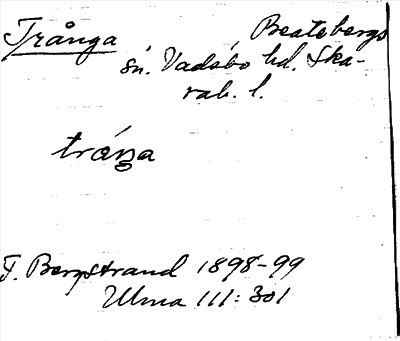 Trånga Beatebergs
sn. Vadsbo hd. Ska-
rab. l.
tráŋa
T. Bergstrand 1898-99
Ulma 111:301